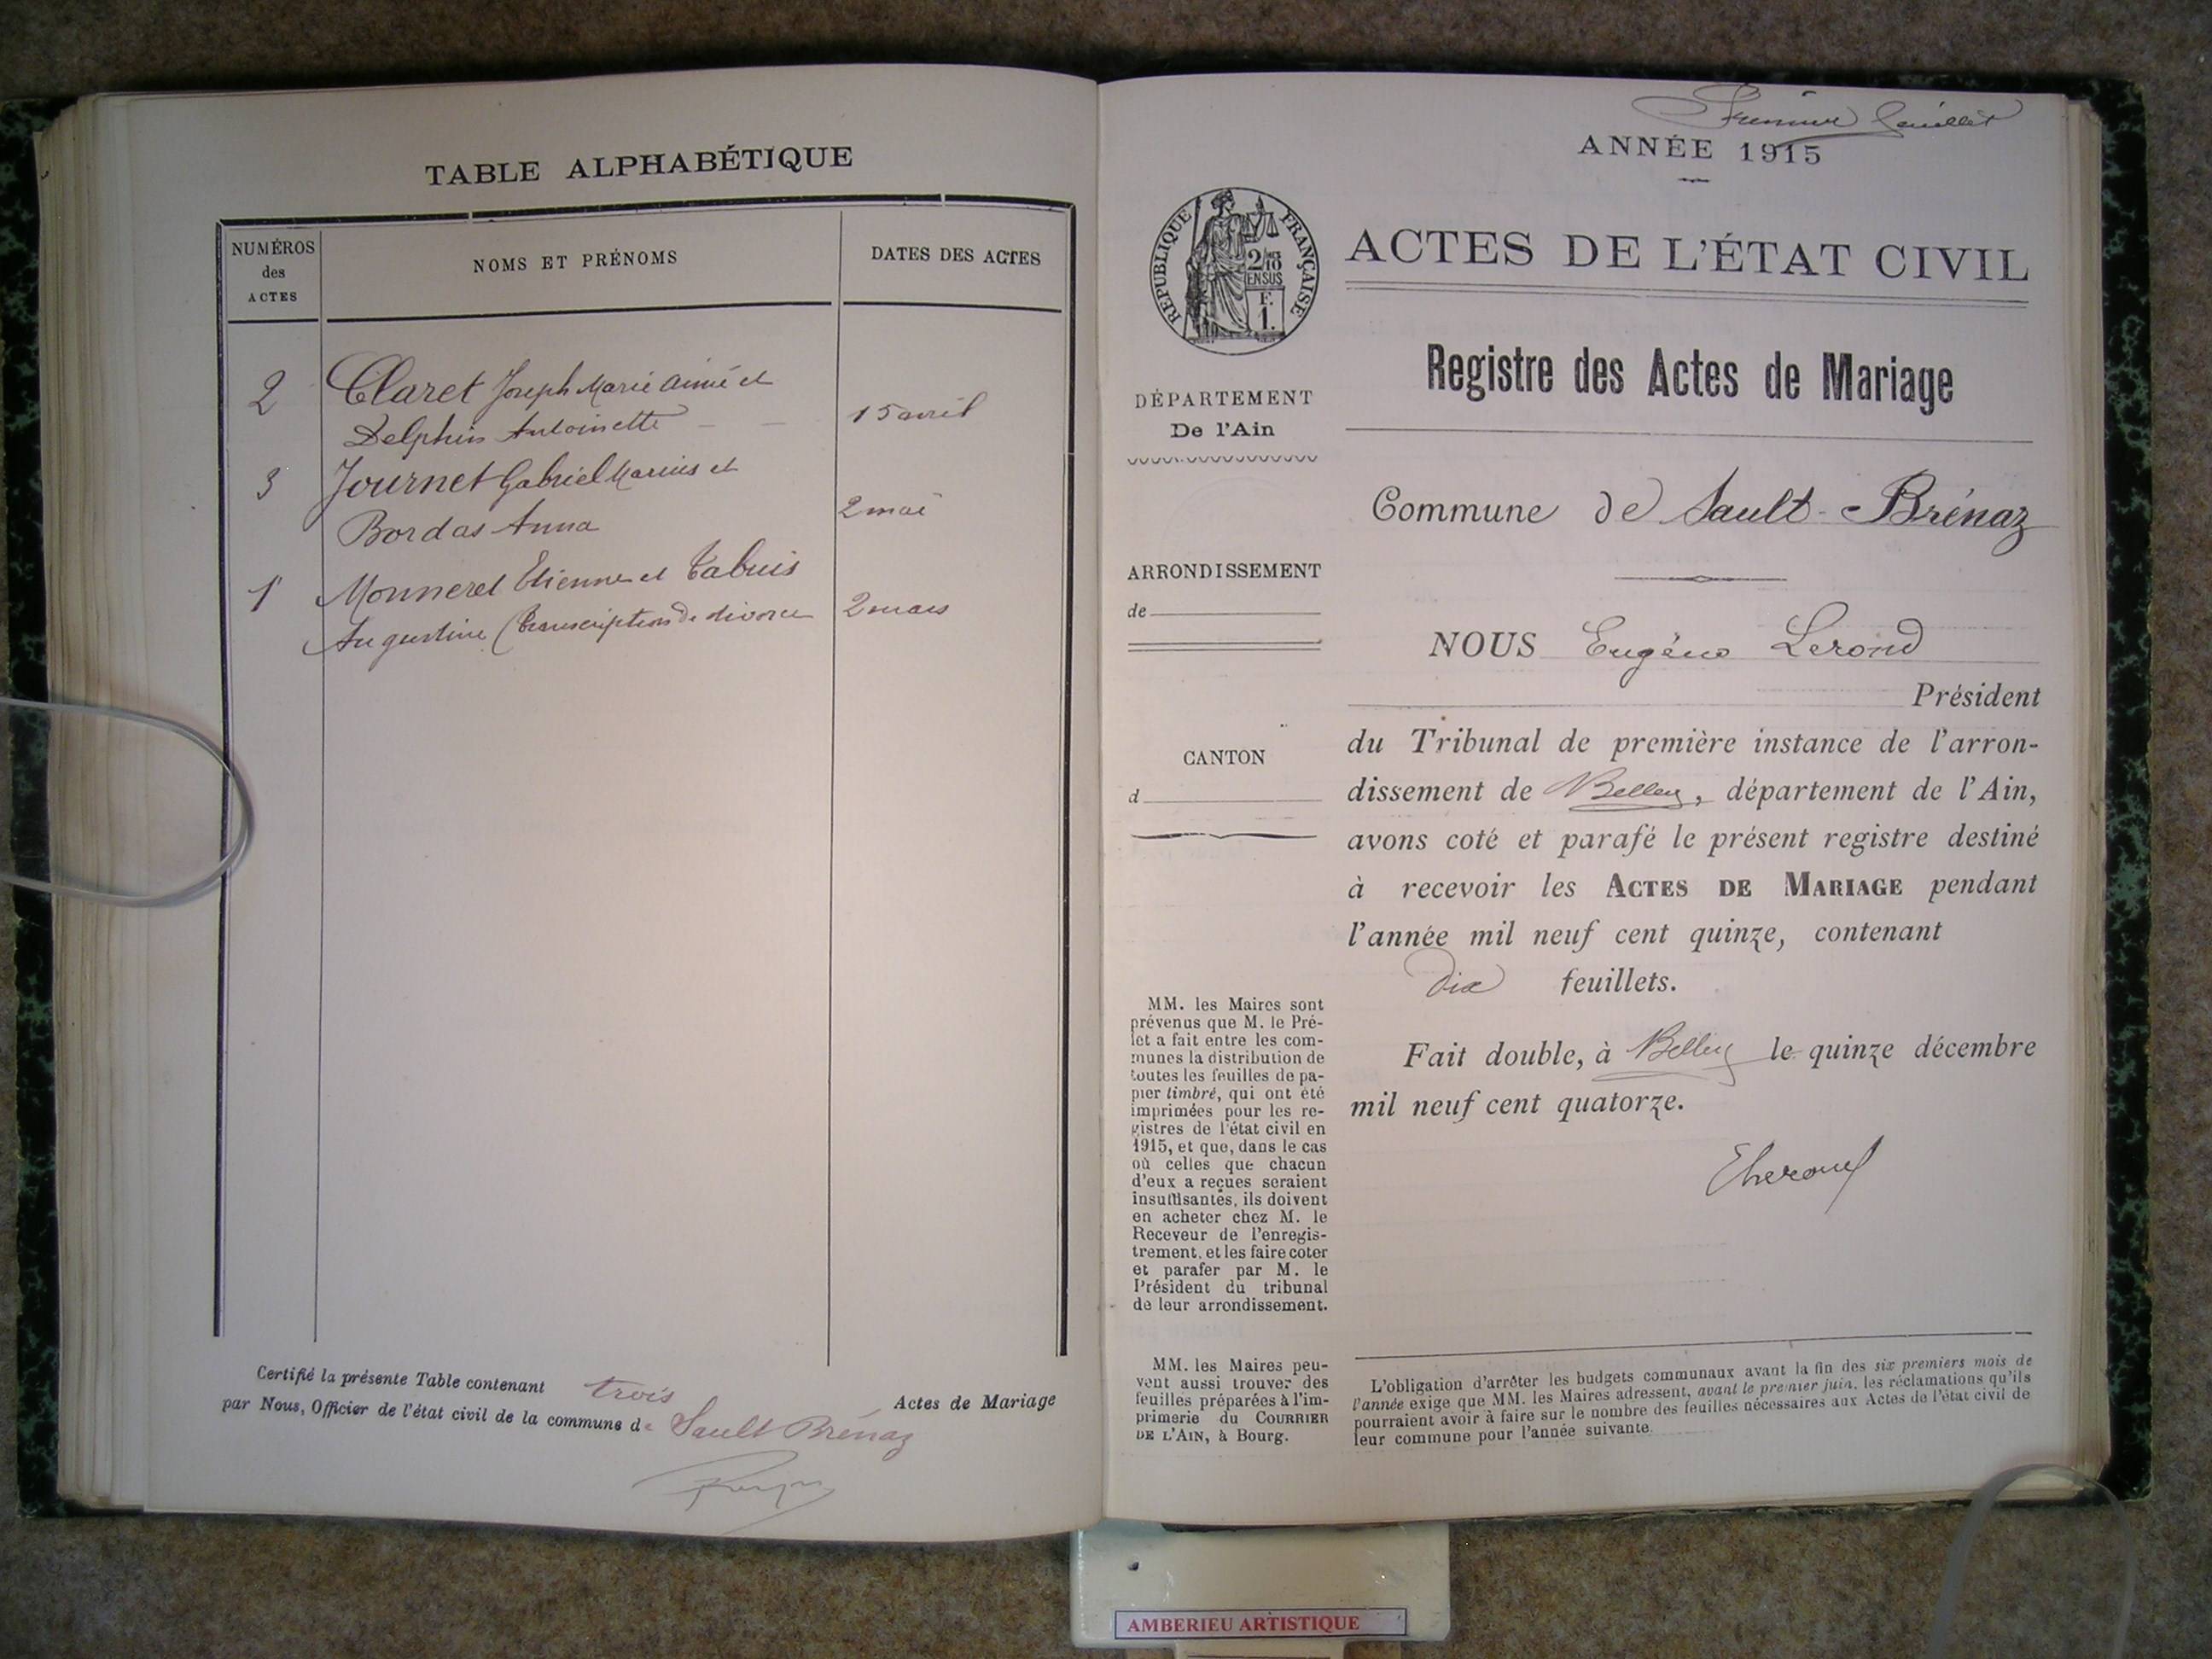 TABLE ALPHABÉTIQUE
NUMÉROS
des
ACTES
NOMS ET PRÉNOMS
DATES DES ACTES
2 Claret Joseph Marie Aimé et
Delphin Antoinette 15 avril
3 Journet Gabriel Marius et
Bordas Anna 2 mai
1 Monneret Etienne et Tabuis
Augustine (transcription de divorce 2 mars
Certifié la présente Table contenant trois Actes de Mariage
par Nous, Officier de l'état civil de la commune de Sault Brénaz
Premier feuillet
ANNÉE 1915
RÉPUBLIQUE FRANÇAISE
2/10
EN SUS
F.
1.
ACTES DE L'ÉTAT CIVIL
Registre des Actes de Mariage
DÉPARTEMENT
De l'Ain
Commune de Sault-Brénaz
ARRONDISSEMENT
de
NOUS Eugène Lerond
Président
CANTON
d
du Tribunal de première instance de l'arron-
dissement de Belley, département de l'Ain,
avons coté et parafé le présent registre destiné
à recevoir les ACTES DE MARIAGE pendant
l'année mil neuf cent quinze, contenant
Dix feuillets.
Fait double, à Belley le quinze décembre
mil neuf cent quatorze.
MM. les Maires sont
prévenus que M. le Pré-
fet a fait entre les com-
munes la distribution de
toutes les feuilles de pa-
pier timbré, qui ont été
imprimées pour les re-
gistres de l'état civil en
1915, et que, dans le cas
où celles que chacun
d'eux a reçues seraient
insuffisantes, ils doivent
en acheter chez M. le
Receveur de l'enregis-
trement, et les faire coter
et parafer par M. le
Président du tribunal
de leur arrondissement.
MM. les Maires peu-
vent aussi trouver des
feuilles préparées à l'im-
primerie du COURRIER
DE L'AIN, à Bourg.
L'obligation d'arrêter les budgets communaux avant la fin des six premiers mois de
l'année exige que MM. les Maires adressent, avant le premier juin, les réclamations qu'ils
pourraient avoir à faire sur le nombre des feuilles nécessaires aux Actes de l'état civil de
leur commune pour l'année suivante.
AMBERIEU ARTISTIQUE